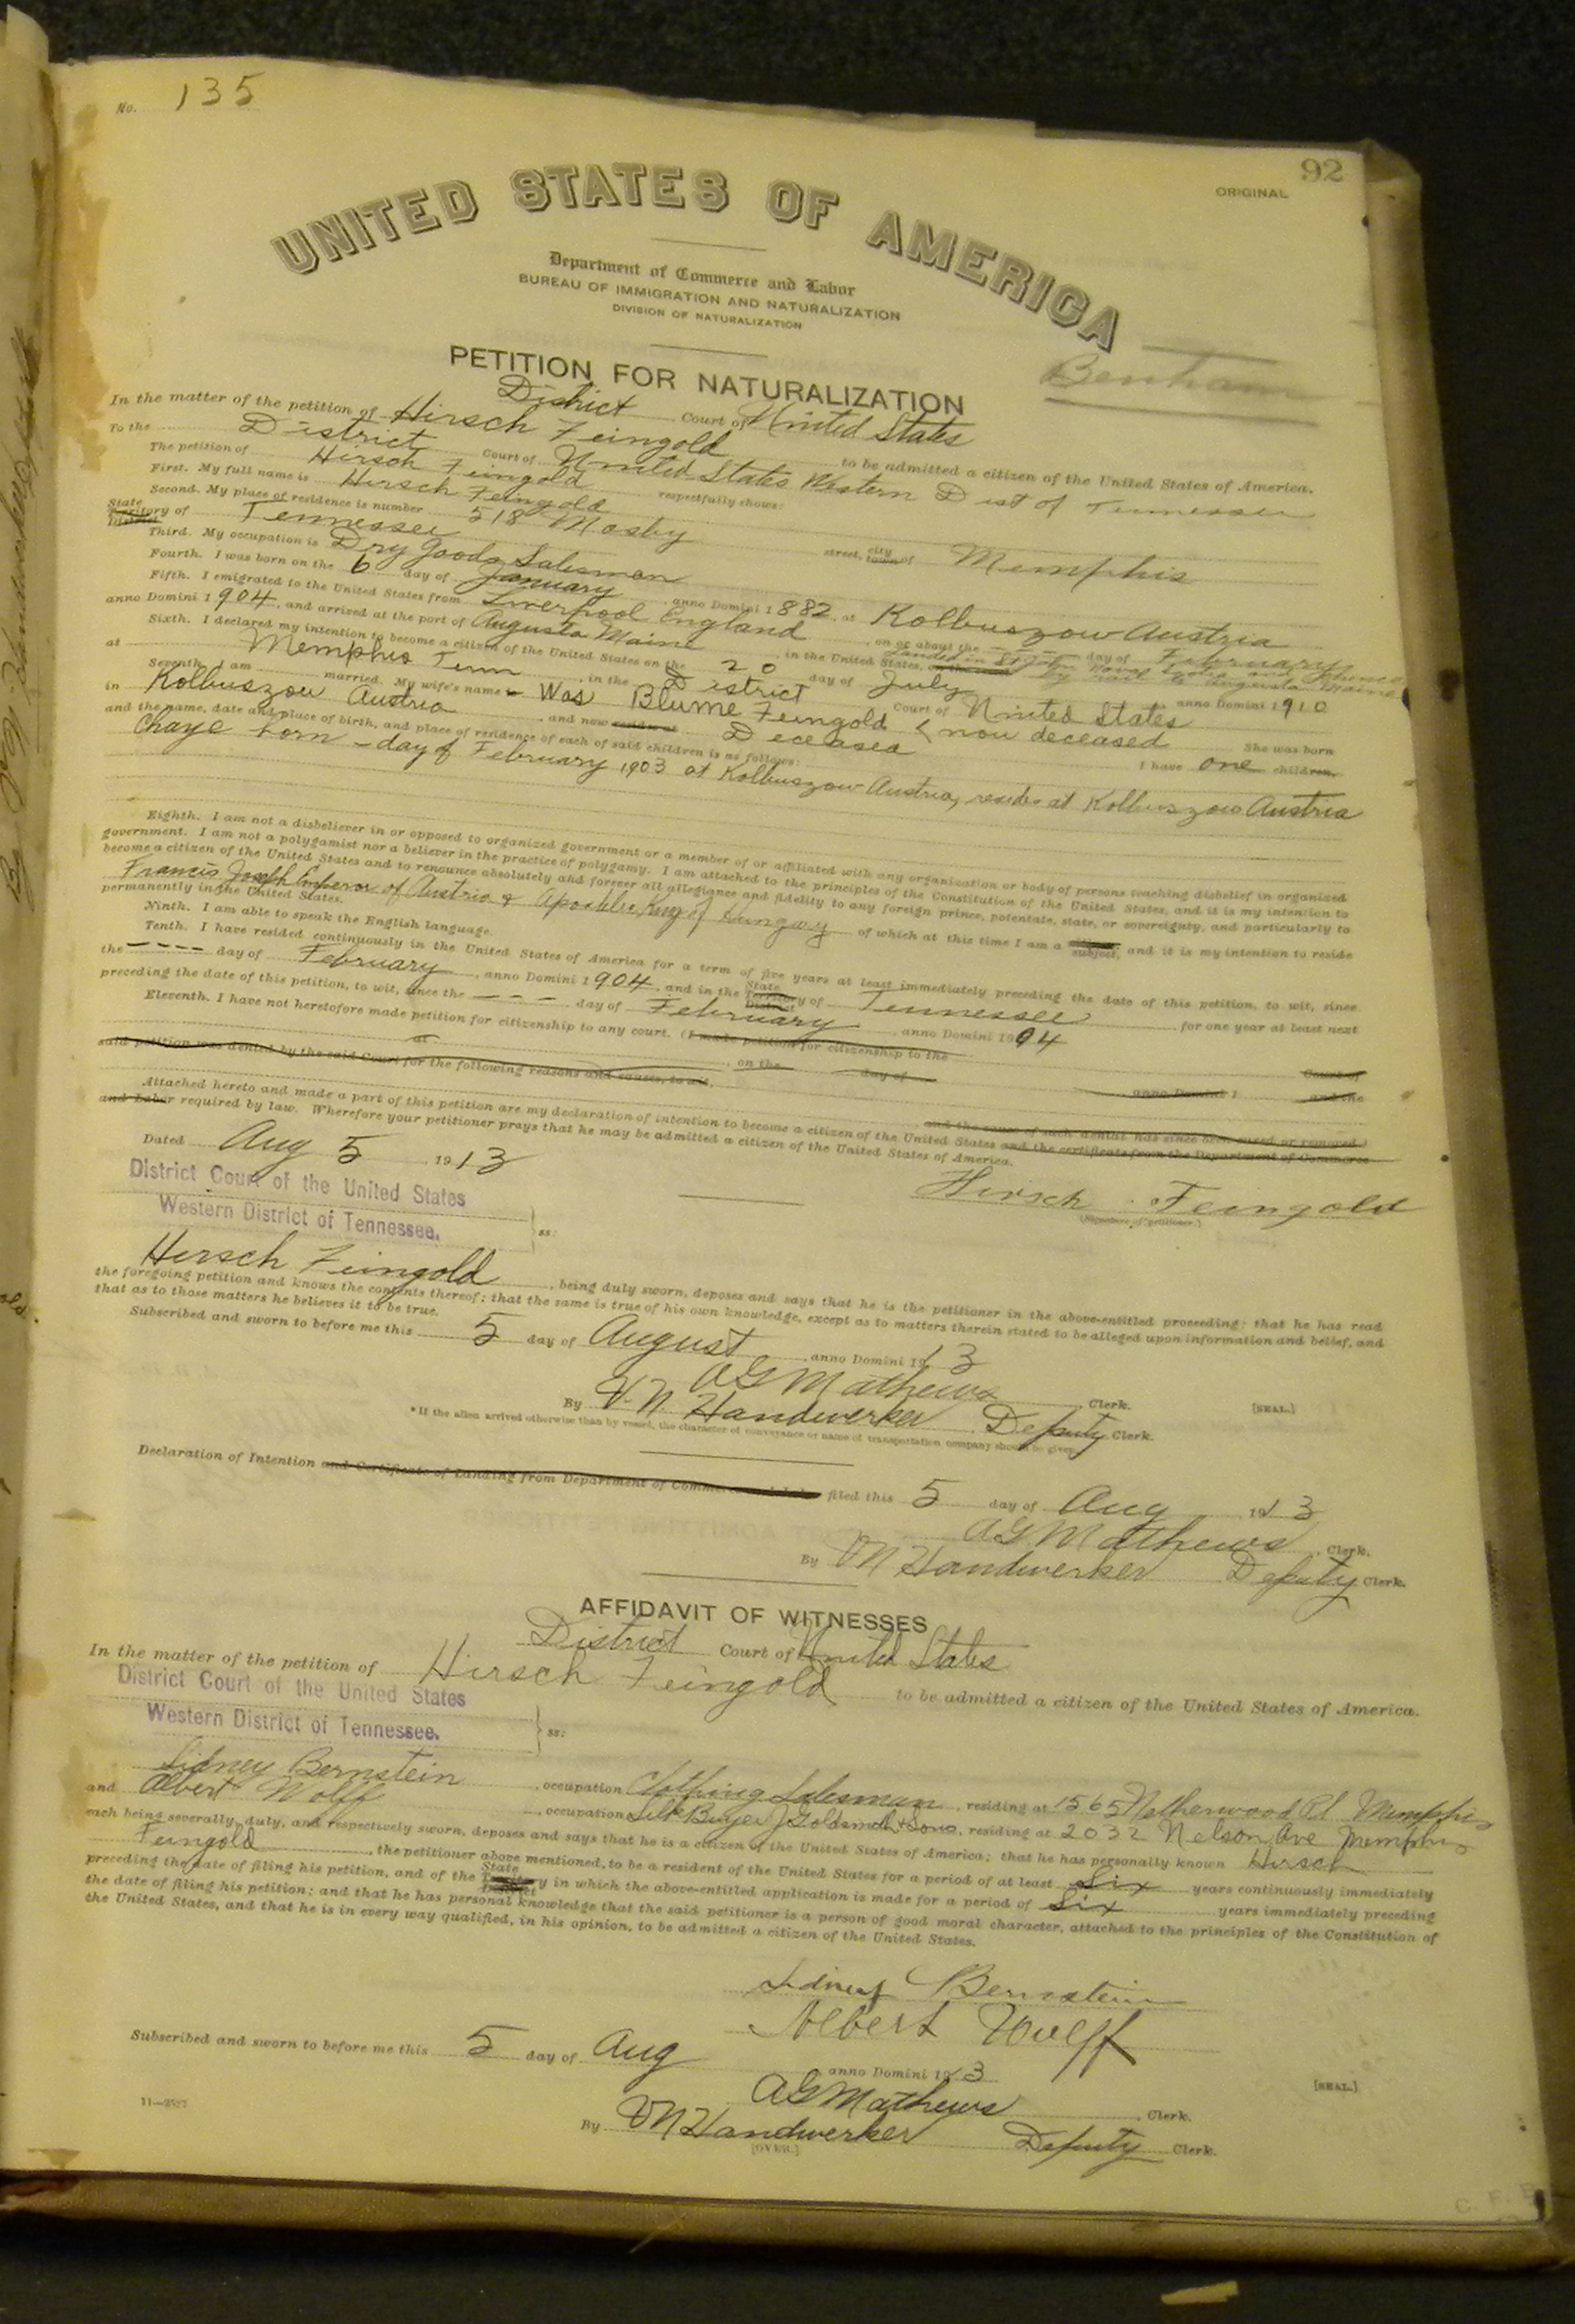 No. 135
92
ORIGINAL
UNITED STATES OF AMERICA
Department of Commerce and Labor
BUREAU OF IMMIGRATION AND NATURALIZATION
DIVISION OF NATURALIZATION
Benham
PETITION FOR NATURALIZATION
District Court of United States
In the matter of the petition of Hirsch Feingold to be admitted a citizen of the United States of America.
To the District Court of United States Western Dist of Tennessee
The petition of Hirsch Feingold respectfully shows:
First. My full name is Hirsch Feingold
Second. My place of residence is number 518 Mosby street, city town of Memphis
State Territory District of Tennessee
Third. My occupation is Dry Goods Salesman
Fourth. I was born on the 6 day of January anno Domini 1882, at Kolbuszow Austria
Fifth. I emigrated to the United States from Liverpool England on or about the day of February
anno Domini 1904, and arrived at the port of Augusta Maine in the United States, Landed in St John Nova Scotia and thence by rail to Augusta Maine
Sixth. I declared my intention to become a citizen of the United States on the 20 day of July anno Domini 1910
at Memphis Tenn, in the District Court of United States
Seventh. I am married. My wife's name Was Blume Feingold (now deceased She was born
in Kolbuszow Austria and now resides at Deceased I have one children,
and the name, date and place of birth, and place of residence of each of said children is as follows:
Chaye born - day of February 1903 at Kolbuszow Austria, resides at Kolbuszow Austria
Eighth. I am not a disbeliever in or opposed to organized government or a member of or affiliated with any organization or body of persons teaching disbelief in organized
government. I am not a polygamist nor a believer in the practice of polygamy. I am attached to the principles of the Constitution of the United States, and it is my intention to
become a citizen of the United States and to renounce absolutely and forever all allegiance and fidelity to any foreign prince, potentate, state, or sovereignty, and particularly to
Francis Joseph Emperor of Austria & Apostolic King of Hungary of which at this time I am a subject, and it is my intention to reside
permanently in the United States.
Ninth. I am able to speak the English language.
Tenth. I have resided continuously in the United States of America for a term of five years at least immediately preceding the date of this petition, to wit, since
the ---- day of February, anno Domini 1904, and in the State Territory District of Tennessee for one year at least next
preceding the date of this petition, to wit, since the --- day of February anno Domini 1904
Eleventh. I have not heretofore made petition for citizenship to any court. (I made petition for citizenship to the Court of
at on the day of anno Domini 1 and the
said petition was denied by the said Court for the following reasons and causes, to wit,
and the cause of such denial has since been cured or removed.)
Attached hereto and made a part of this petition are my declaration of intention to become a citizen of the United States and the certificate from the Department of Commerce
and Labor required by law. Wherefore your petitioner prays that he may be admitted a citizen of the United States of America.
Dated Aug 5, 1913
Hirsch Feingold
(Signature of petitioner.)
District Court of the United States
Western District of Tennessee. ss:
Hirsch Feingold, being duly sworn, deposes and says that he is the petitioner in the above-entitled proceeding; that he has read
the foregoing petition and knows the contents thereof; that the same is true of his own knowledge, except as to matters therein stated to be alleged upon information and belief, and
that as to those matters he believes it to be true.
Subscribed and sworn to before me this 5 day of August, anno Domini 1913
AG Mathews, Clerk.
[SEAL.]
By V.N. Handwerker Deputy Clerk.
*If the alien arrived otherwise than by vessel, the character of conveyance or name of transportation company should be given.
Declaration of Intention and Certificate of Landing from Department of Commerce and Labor filed this 5 day of Aug 1913
AG Mathews, Clerk.
By VN Handwerker Deputy Clerk.
AFFIDAVIT OF WITNESSES
District Court of United States
In the matter of the petition of Hirsch Feingold to be admitted a citizen of the United States of America.
District Court of the United States
Western District of Tennessee. ss:
Sidney Bernstein, occupation Clothing Salesman, residing at 1565 Netherwood Pl Memphis
and Albert Wolff, occupation Silk Buyer J Goldsmith & Sons, residing at 2032 Nelson Ave Memphis
each being severally, duly, and respectively sworn, deposes and says that he is a citizen of the United States of America; that he has personally known Hirsch
Feingold, the petitioner above mentioned, to be a resident of the United States for a period of at least Six years continuously immediately
preceding the date of filing his petition, and of the State Territory District in which the above-entitled application is made for a period of Six years immediately preceding
the date of filing his petition; and that he has personal knowledge that the said petitioner is a person of good moral character, attached to the principles of the Constitution of
the United States, and that he is in every way qualified, in his opinion, to be admitted a citizen of the United States.
Sidney Bernstein
Albert Wolff
Subscribed and sworn to before me this 5 day of Aug anno Domini 1913
[SEAL.]
AG Mathews, Clerk.
11—2527
By VN Handwerker Deputy Clerk.
[OVER.]